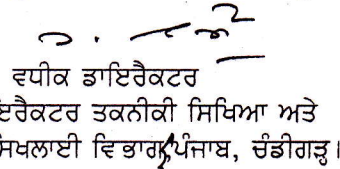 ਵਧੀਕ ਡਾਇਰੈਕਟਰ
ਇਰੈਕਟਰ ਤਕਨੀਕੀ ਸਿਖਿਆ ਅਤੇ
ਸਖਲਾਈ ਵਿਭਾਗ ਪੰਜਾਬ, ਚੰਡੀਗੜ੍ਹ।